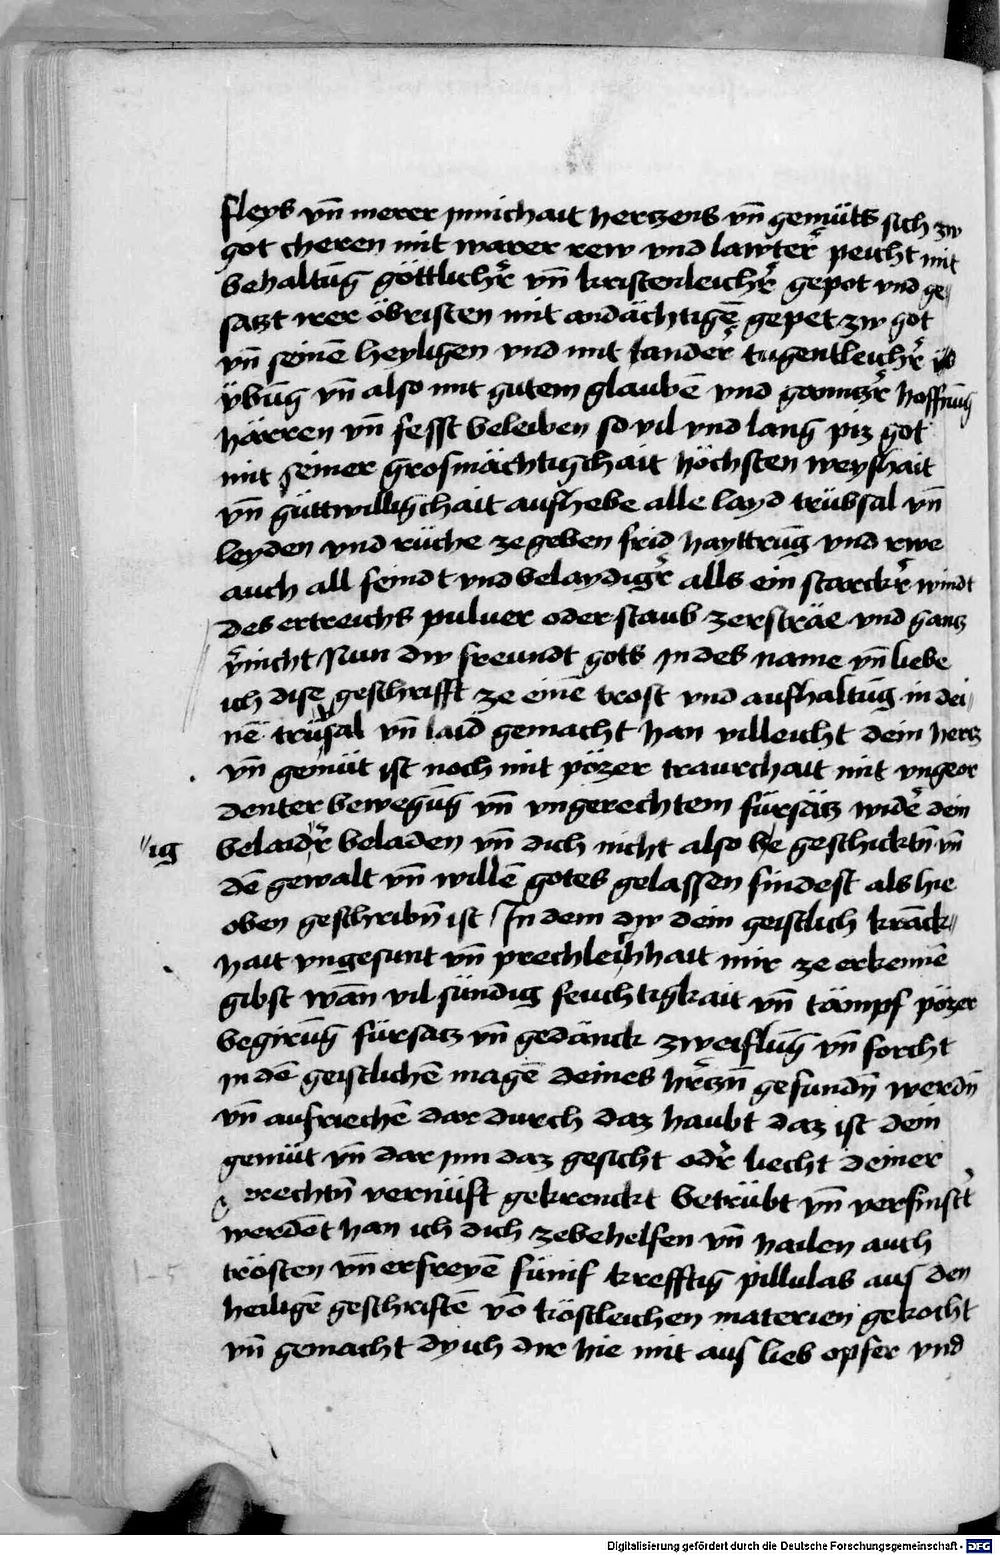 fleys vn̄ merer jnnichait hertzens vn̄ gemüts sich zw
got cheren mit warer rew vnd lawter peicht mit
behaltūg göttlicher vn̄ kristenleicher gepot vnd ge
satzt irer öbristen mit andächtigē gepet zw got
vn̄ seinē heyligen vnd mit sander tugentleicher
übūg vn̄ also mit gutem glaubē vnd gantzer hoffnūg
härren vn̄ fesst beleiben so vil vnd lang piz got
mit seiner grosmächtigchait höchsten weyshait
vn̄ güttwilligchait aufhebe alle layd trübsal vn̄
leyden vnd rüche ze geben frid hayttrūg vnd rwe
auch all feindt vnd belaydiger alls ein starcker windt
des ertreichs puluer oder staub zersträe vnd gantz
v̄nicht Nun dw freundt gots jn des name vn̄ liebe
ich dise geschrifft ze einē trost vnd aufhaltūg in dei
nē trüsal vn̄ laid gemacht han villeicht dein hertz
vn̄ gemüt ist noch mit pözer traurchait mit vngeor
denter bewegūg vn̄ vngerechtem fürsätz widē dein
ig belaidr̄ beladen vn̄ dich nicht also geschicktn̄ vn̄
dē gewalt vn̄ willē gotes gelassen findest als hie
oben geschribn̄ ist Jn dem dw dein geistlich krāck
hait vngesunt vn̄ prechleichhait mir ze erkennē
gibst wān vil sündig feuchtigkait vn̄ tämpf pözer
begirūg fürsatz vn̄ gedänck zweiflūg vn̄ forcht
jn dē geistlichē magē deines hr̄tzn̄ gefundn̄ werdn̄
vn̄ aufriechē dar durch daz haubt daz ist dein
gemüt vn̄ dar jnn daz gesicht odr̄ liecht deiner
gerechtn̄ vernüft gekrenckt betrübt vn̄ verfinstt̄
werdēt han ich dich zebehelfen vn̄ hailen auch
trösten vn̄ erfreyē fünif krefftig pillulas aus den
heiligē geschriftē vō köstleichen materien gekocht
vn̄ gemacht dy ich dir hie mit aus lieb opfer vnd
Digitalisierung gefördert durch die Deutsche Forschungsgemeinschaft - DFG